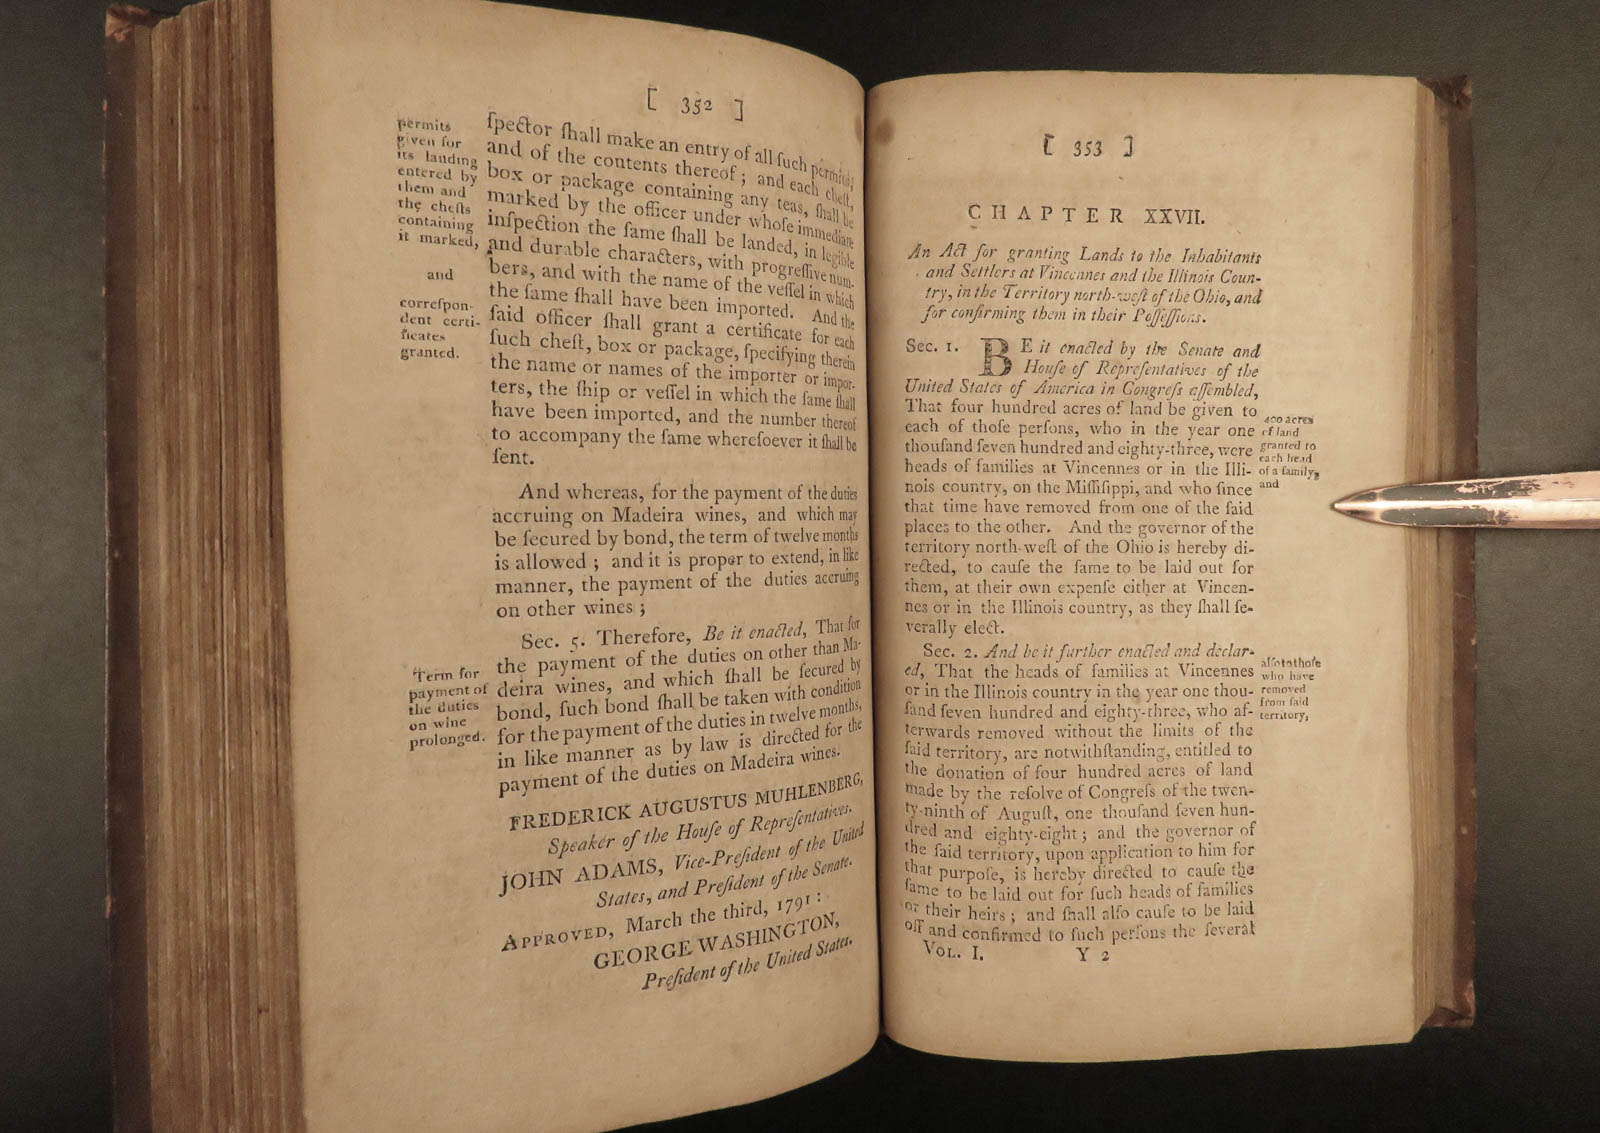 [ 352 ]
permits
given for
its landing
entered by
them and
the cheſts
containing
it marked,
and
correſpon-
dent certi-
ficates
granted.
ſpector ſhall make an entry of all ſuch permits,
and of the contents thereof; and each cheſt,
box or package containing any teas, ſhall be
marked by the officer under whoſe immediate
inſpection the ſame ſhall be landed, in legible
and durable characters, with progreſſive num-
bers, and with the name of the veſſel in which
the ſame ſhall have been imported. And the
ſaid officer ſhall grant a certificate for each
ſuch cheſt, box or package, ſpecifying therein
the name or names of the importer or impor-
ters, the ſhip or veſſel in which the ſame ſhall
have been imported, and the number thereof
to accompany the ſame whereſoever it ſhall be
ſent.
And whereas, for the payment of the duties
accruing on Madeira wines, and which may
be ſecured by bond, the term of twelve months
is allowed; and it is proper to extend, in like
manner, the payment of the duties accruing
on other wines;
Term for
payment of
the duties
on wine
prolonged.
Sec. 5. Therefore, Be it enacted, That for
the payment of the duties on other than Ma-
deira wines, and which ſhall be ſecured by
bond, ſuch bond ſhall be taken with condition
for the payment of the duties in twelve months,
in like manner as by law is directed for the
payment of the duties on Madeira wines.
FREDERICK AUGUSTUS MUHLENBERG,
Speaker of the Houſe of Repreſentatives.
JOHN ADAMS, Vice-Preſident of the United
States, and Preſident of the Senate.
APPROVED, March the third, 1791:
GEORGE WASHINGTON,
Preſident of the United States.
[ 353 ]
CHAPTER XXVII.
An Act for granting Lands to the Inhabitants
and Settlers at Vincennes and the Illinois Coun-
try, in the Territory north-weſt of the Ohio, and
for confirming them in their Poſſeſſions.
Sec. 1. BE it enacted by the Senate and
Houſe of Repreſentatives of the
United States of America in Congreſs aſſembled,
That four hundred acres of land be given to
each of thoſe perſons, who in the year one
thouſand ſeven hundred and eighty-three, were
heads of families at Vincennes or in the Illi-
nois country, on the Miſſiſippi, and who ſince
that time have removed from one of the ſaid
places to the other. And the governor of the
territory north-weſt of the Ohio is hereby di-
rected, to cauſe the ſame to be laid out for
them, at their own expenſe either at Vincen-
nes or in the Illinois country, as they ſhall ſe-
verally elect.
400 acres
of land
granted to
each head
of a family,
and
Sec. 2. And be it further enacted and declar-
ed, That the heads of families at Vincennes
or in the Illinois country in the year one thou-
ſand ſeven hundred and eighty-three, who af-
terwards removed without the limits of the
ſaid territory, are notwithſtanding, entitled to
the donation of four hundred acres of land
made by the reſolve of Congreſs of the twen-
ty-ninth of Auguſt, one thouſand ſeven hun-
dred and eighty-eight; and the governor of
the ſaid territory, upon application to him for
that purpoſe, is hereby directed to cauſe the
ſame to be laid out for ſuch heads of families
or their heirs; and ſhall alſo cauſe to be laid
off and confirmed to ſuch perſons the ſeveral
alſo to thoſe
who have
removed
from ſaid
territory,
VOL. I. Y 2